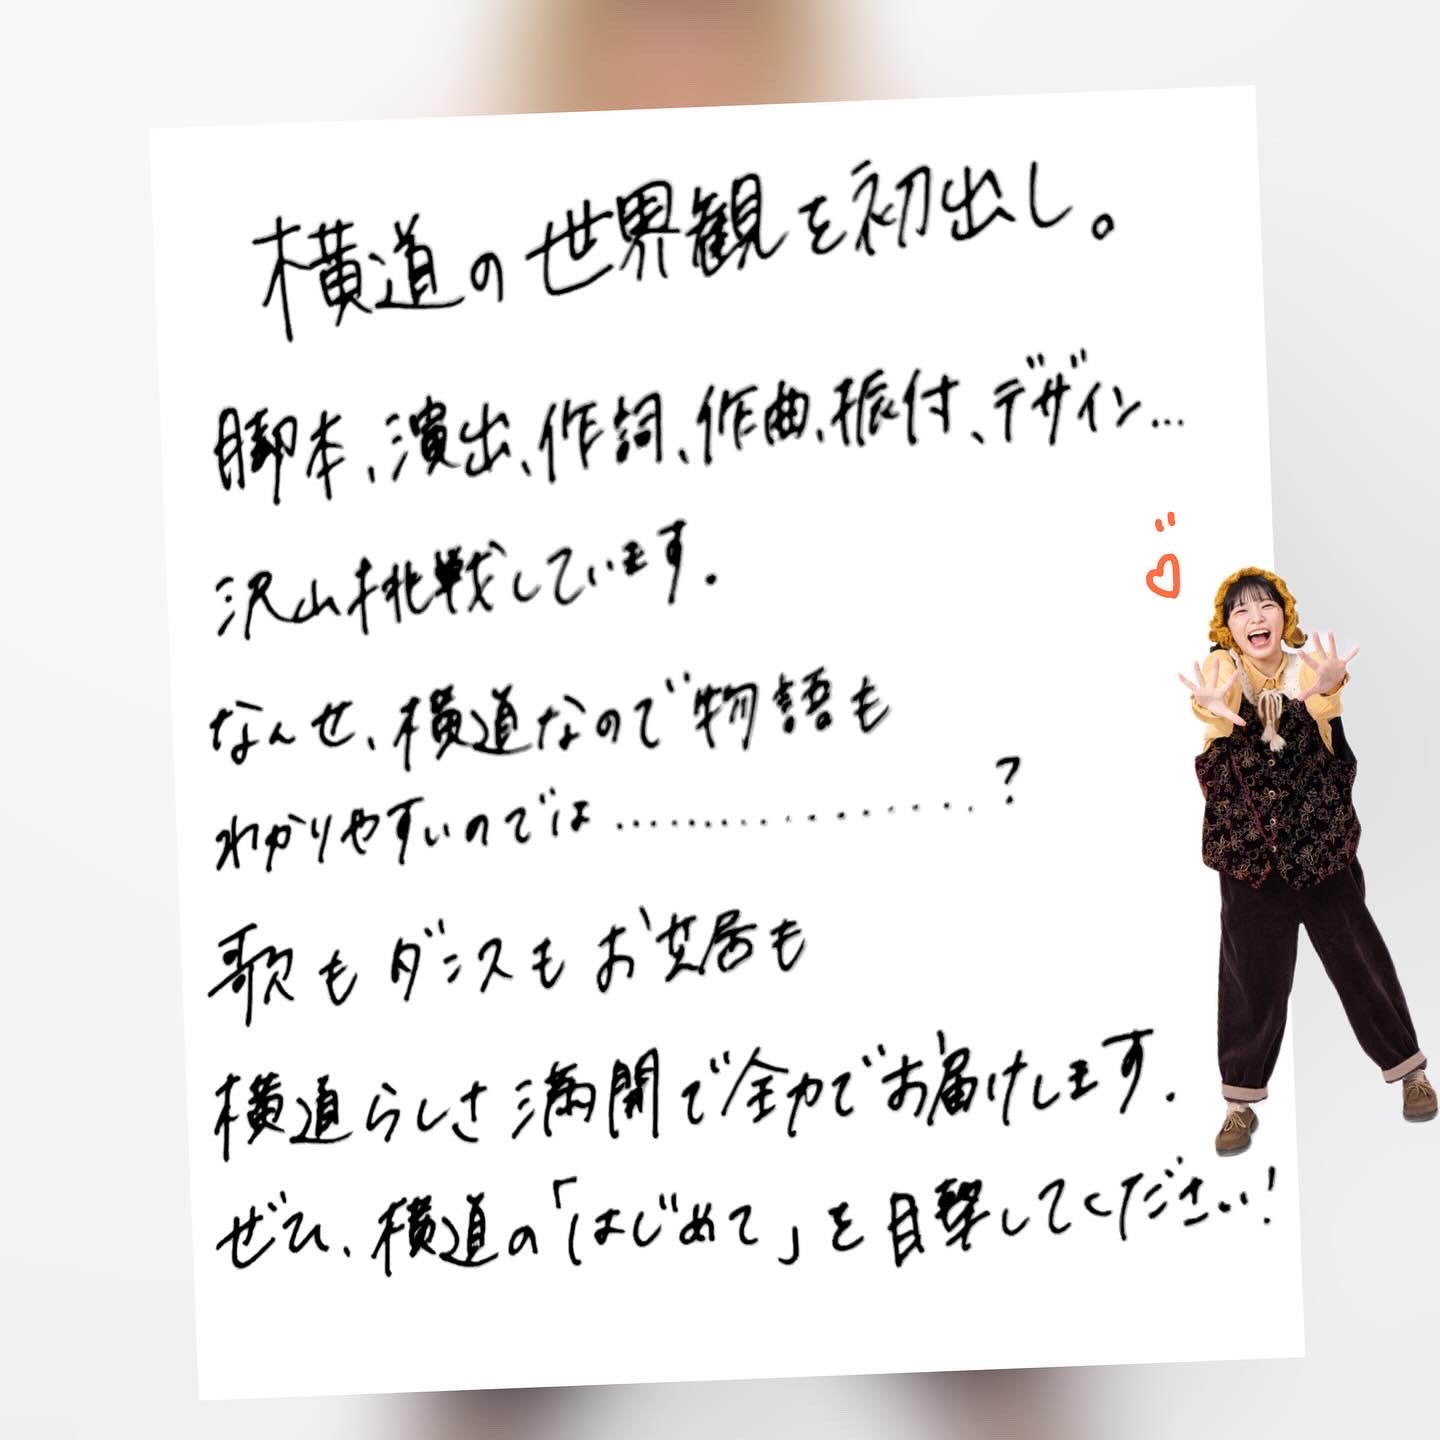 横道の世界観を初出し。
脚本、演出、作詞、作曲、振付、デザイン...
沢山挑戦しています。
なんせ、横道なので物語も
わかりやすいのでは..................?
歌もダンスもお芝居も
横道らしさ満開で全力でお届けします.
ぜひ、横道の「はじめて」を目撃してください!